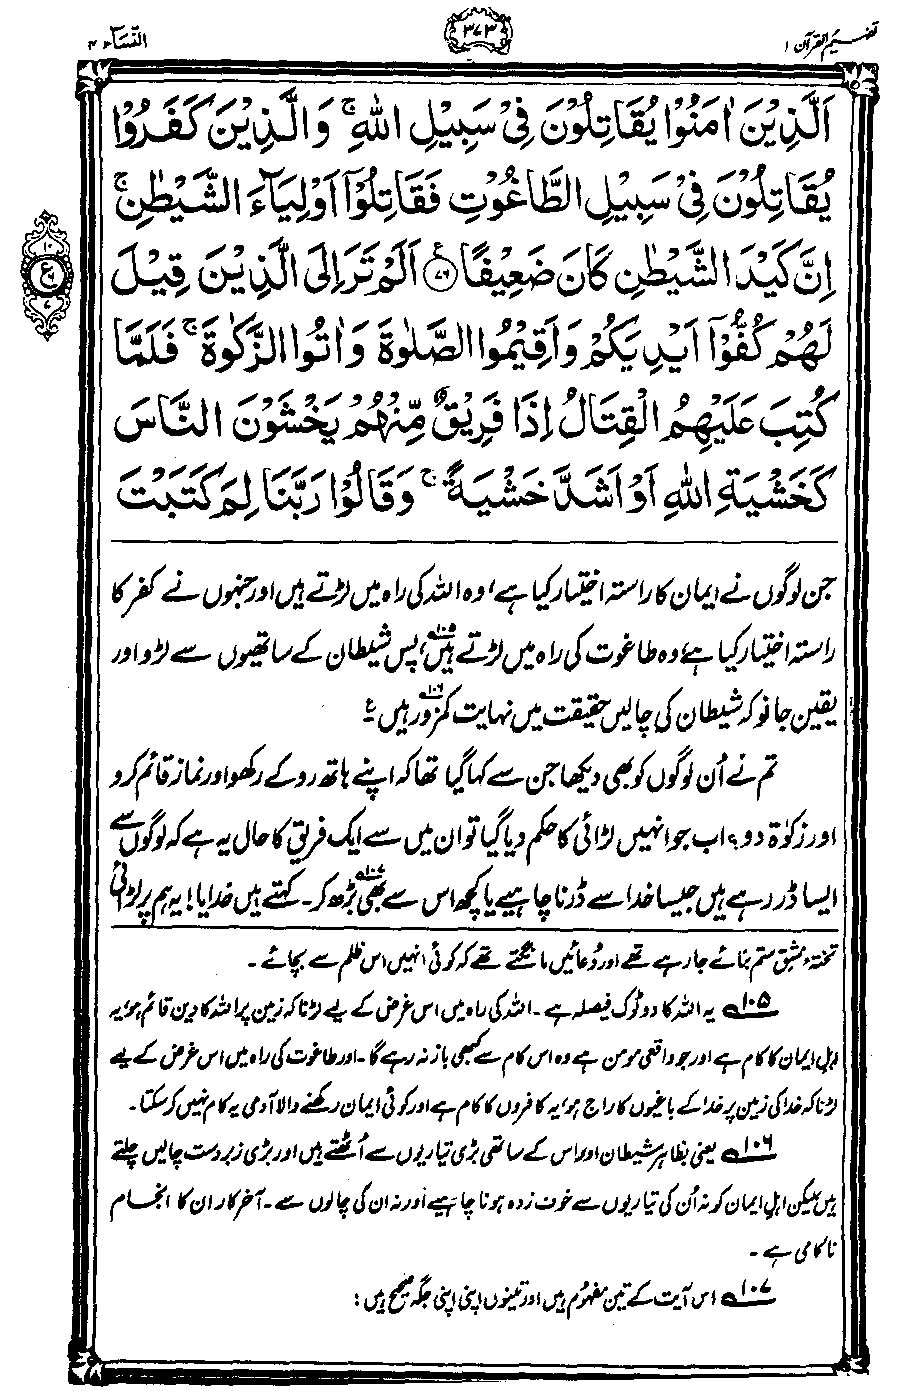 تفہیم القرآن ۱
۳۷۳
النّسآء ۴
اَلَّذِیْنَ اٰمَنُوْا یُقَاتِلُوْنَ فِیْ سَبِیْلِ اللّٰهِ ۚ وَالَّذِیْنَ كَفَرُوْا
یُقَاتِلُوْنَ فِیْ سَبِیْلِ الطَّاغُوْتِ فَقَاتِلُوْۤا اَوْلِیَآءَ الشَّیْطٰنِ ۚ
اِنَّ كَیْدَ الشَّیْطٰنِ كَانَ ضَعِیْفًا ﴿۷۶﴾ اَلَمْ تَرَ اِلَی الَّذِیْنَ قِیْلَ
لَهُمْ كُفُّوْۤا اَیْدِیَكُمْ وَاَقِیْمُوا الصَّلٰوةَ وَاٰتُوا الزَّكٰوةَ ۚ فَلَمَّا
كُتِبَ عَلَیْهِمُ الْقِتَالُ اِذَا فَرِیْقٌ مِّنْهُمْ یَخْشَوْنَ النَّاسَ
كَخَشْیَةِ اللّٰهِ اَوْ اَشَدَّ خَشْیَةً ۚ وَقَالُوْا رَبَّنَا لِمَ كَتَبْتَ
ع
۱۰
۷
جن لوگوں نے ایمان کا راستہ اختیار کیا ہے، وہ اللہ کی راہ میں لڑتے ہیں اور جنہوں نے کفر کا
راستہ اختیار کیا ہے، وہ طاغوت کی راہ میں لڑتے ہیں،۱۰۵ پس شیطان کے ساتھیوں سے لڑو اور
یقین جانو کہ شیطان کی چالیں حقیقت میں نہایت کمزور ہیں۔۱۰۶ ع
تم نے اُن لوگوں کو بھی دیکھا جن سے کہا گیا تھا کہ اپنے ہاتھ روکے رکھو اور نماز قائم کرو
اور زکوٰۃ دو؟ اب جو انہیں لڑائی کا حکم دیا گیا تو ان میں سے ایک فریق کا حال یہ ہے کہ لوگوں سے
ایسا ڈر رہے ہیں جیسا خدا سے ڈرنا چاہیے یا کچھ اس سے بھی بڑھ کر۔۱۰۷ کہتے ہیں خدایا! یہ ہم پر لڑائی
تختۂ مشقِ ستم بنائے جا رہے تھے اور دُعائیں مانگتے تھے کہ کوئی انہیں اس ظلم سے بچائے۔
۱۰۵ یہ اللہ کا دو ٹوک فیصلہ ہے۔ اللہ کی راہ میں اس غرض کے لیے لڑنا کہ زمین پر اللہ کا دین قائم ہو، یہ
اہلِ ایمان کا کام ہے اور جو واقعی مومن ہے وہ اس کام سے کبھی باز نہ رہے گا۔ اور طاغوت کی راہ میں اس غرض کے لیے
لڑنا کہ خدا کی زمین پر خدا کے باغیوں کا راج ہو، یہ کافروں کا کام ہے اور کوئی ایمان رکھنے والا آدمی یہ کام نہیں کر سکتا۔
۱۰۶ یعنی بظاہر شیطان اور اس کے ساتھی بڑی تیاریوں سے اُٹھتے ہیں اور بڑی زبردست چالیں چلتے
ہیں، لیکن اہلِ ایمان کو نہ اُن کی تیاریوں سے خوف زدہ ہونا چاہیے اور نہ ان کی چالوں سے۔ آخر کار ان کا انجام
ناکامی ہے۔
۱۰۷ اس آیت کے تین مفہوم ہیں اور تینوں اپنی اپنی جگہ صحیح ہیں: